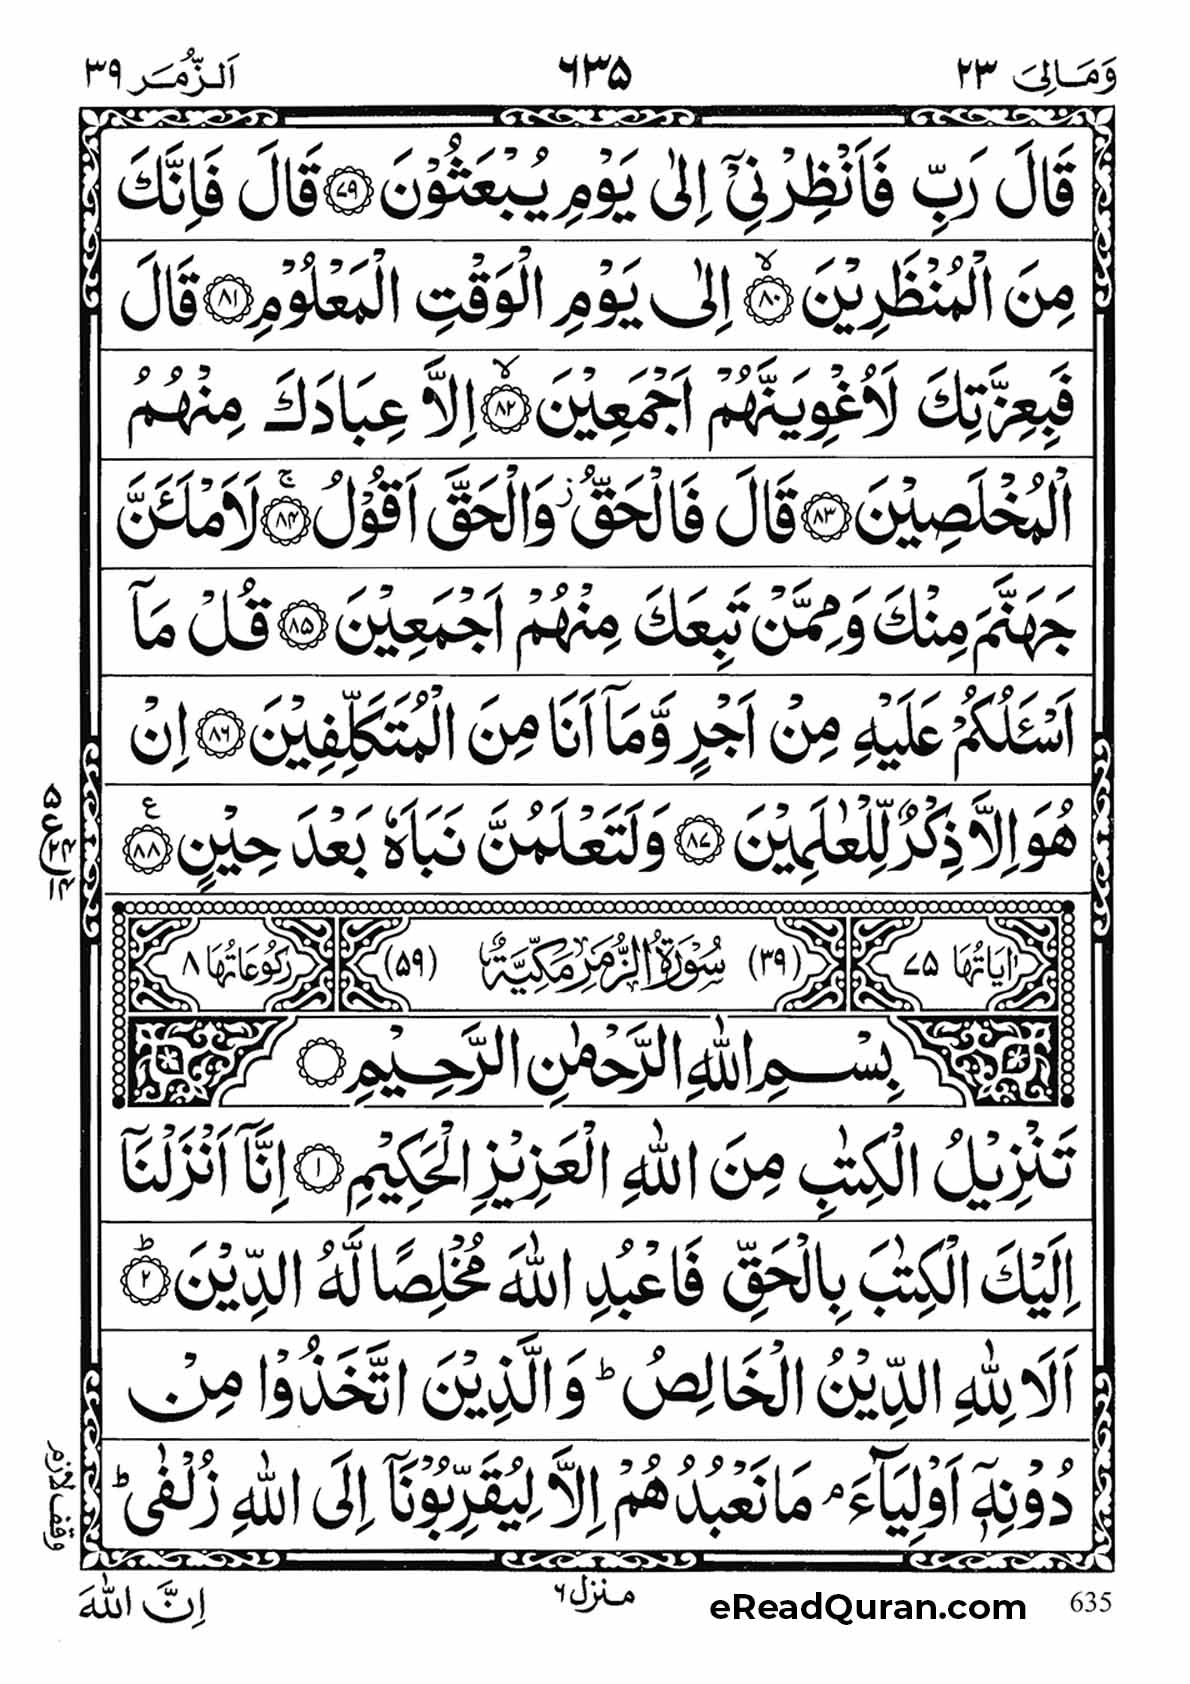 وَمَالِیَ ٢٣ ٦٣٥ اَلزُّمَر ٣٩
قَالَ رَبِّ فَاَنْظِرْنِیْۤ اِلٰى یَوْمِ یُبْعَثُوْنَ ٧٩ قَالَ فَاِنَّكَ
مِنَ الْمُنْظَرِیْنَ ٨٠ۙ اِلٰى یَوْمِ الْوَقْتِ الْمَعْلُوْمِ ٨١ قَالَ
فَبِعِزَّتِكَ لَاُغْوِیَنَّهُمْ اَجْمَعِیْنَ ٨٢ۙ اِلَّا عِبَادَكَ مِنْهُمُ
الْمُخْلَصِیْنَ ٨٣ قَالَ فَالْحَقُّ ز وَالْحَقَّ اَقُوْلُ ٨٤ۚ لَاَمْلَـَٔنَّ
جَهَنَّمَ مِنْكَ وَمِمَّنْ تَبِعَكَ مِنْهُمْ اَجْمَعِیْنَ ٨٥ قُلْ مَاۤ
اَسْـَٔلُكُمْ عَلَیْهِ مِنْ اَجْرٍ وَّمَاۤ اَنَا مِنَ الْمُتَكَلِّفِیْنَ ٨٦ اِنْ
هُوَ اِلَّا ذِكْرٌ لِّلْعٰلَمِیْنَ ٨٧ وَلَتَعْلَمُنَّ نَبَاَهٗ بَعْدَ حِیْنٍ ٨٨ ع
اٰیَاتُهَا ٧٥ (٣٩) سُوْرَةُ الزُّمَرِ مَكِّیَّةٌ (٥٩) رُكُوْعَاتُهَا ٨
بِسْمِ اللّٰهِ الرَّحْمٰنِ الرَّحِیْمِ
تَنْزِیْلُ الْكِتٰبِ مِنَ اللّٰهِ الْعَزِیْزِ الْحَكِیْمِ ١ اِنَّاۤ اَنْزَلْنَاۤ
اِلَیْكَ الْكِتٰبَ بِالْحَقِّ فَاعْبُدِ اللّٰهَ مُخْلِصًا لَّهُ الدِّیْنَ ٢ؕ
اَلَا لِلّٰهِ الدِّیْنُ الْخَالِصُ ؕ وَالَّذِیْنَ اتَّخَذُوْا مِنْ
دُوْنِهٖۤ اَوْلِیَآءَ ۘ مَا نَعْبُدُهُمْ اِلَّا لِیُقَرِّبُوْنَاۤ اِلَى اللّٰهِ زُلْفٰى ؕ
وقف لازم
اِنَّ اللّٰهَ
منزل ٦
eReadQuran.com
635